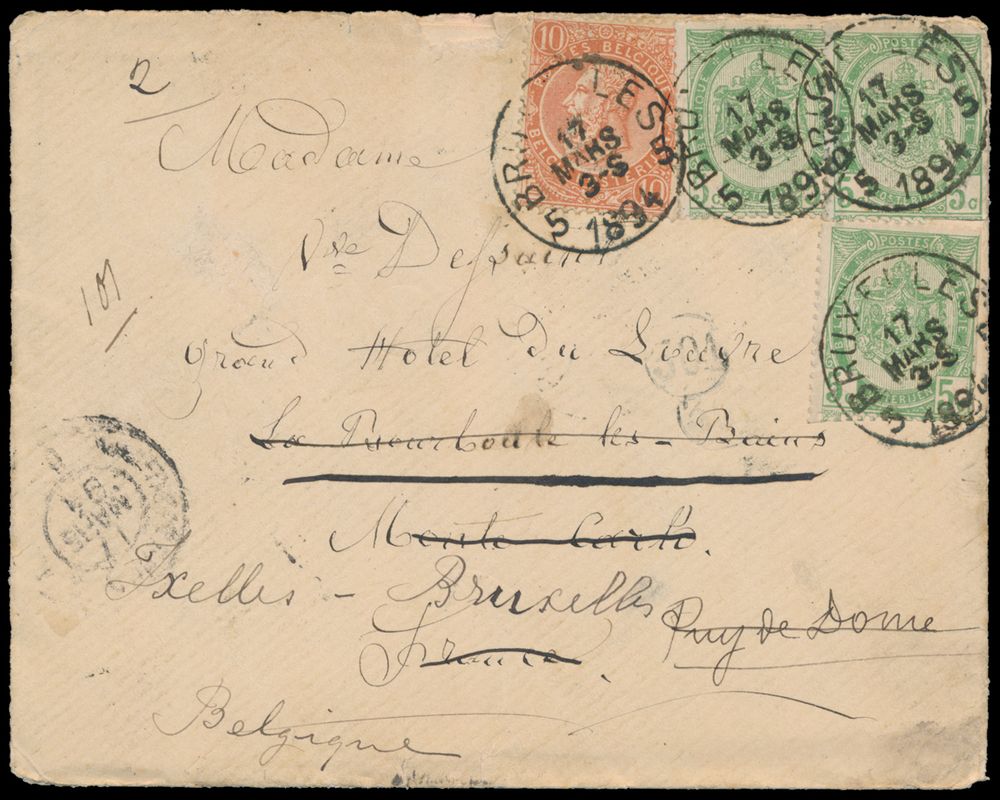 2
10 POSTES BELGIQUE 10
POSTES 5 C
POSTES 5 C
POSTES 5
BRUXELLES 5
17 MARS 3-S
1894 5
BRUXELLES 5
17 MARS 3-S
1894 5
BRUXELLES 5
17 MARS 3-S
1894 5
BRUXELLES
17 MARS 3-S
1894 5
Madame
Vve Dessain
101
Grand Hotel Du Louvre
La Bourboule les-Bains
Monte Carlo.
Ixelles - Bruxelles
Puy de Dome
France.
Belgique